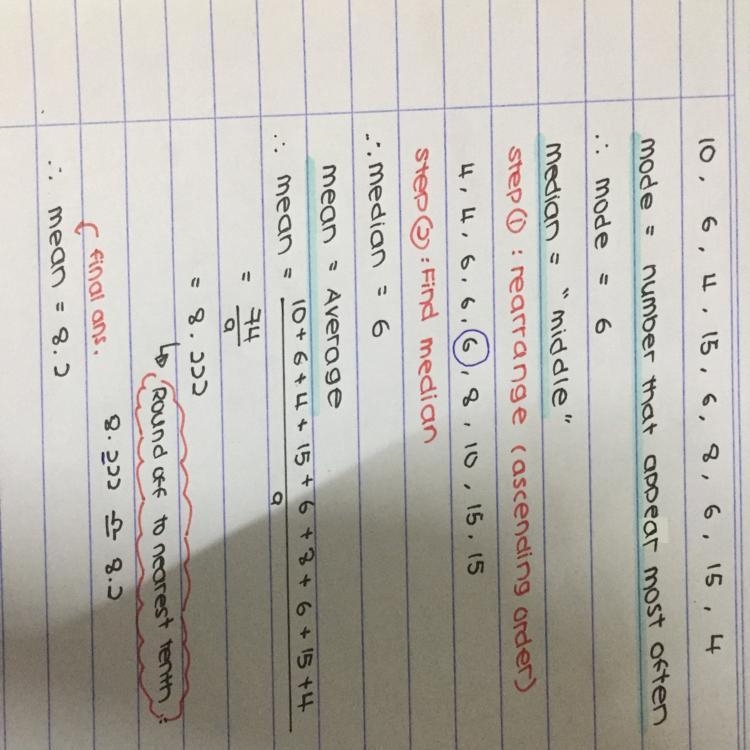 10, 6, 4, 15, 6, 8, 6, 15, 4
mode = number that appear most often
∴ mode = 6
median = "middle"
step ① : rearrange (ascending order)
4, 4, 6, 6, 6, 8, 10, 15, 15
step ② : Find median
∴ median = 6
mean = Average
∴ mean = 10 + 6 + 4 + 15 + 6 + 8 + 6 + 15 + 4
9
= 74
9
= 8.222
↳ Round off to nearest tenth :
8.222 ≏ 8.2
final ans.
∴ mean = 8.2